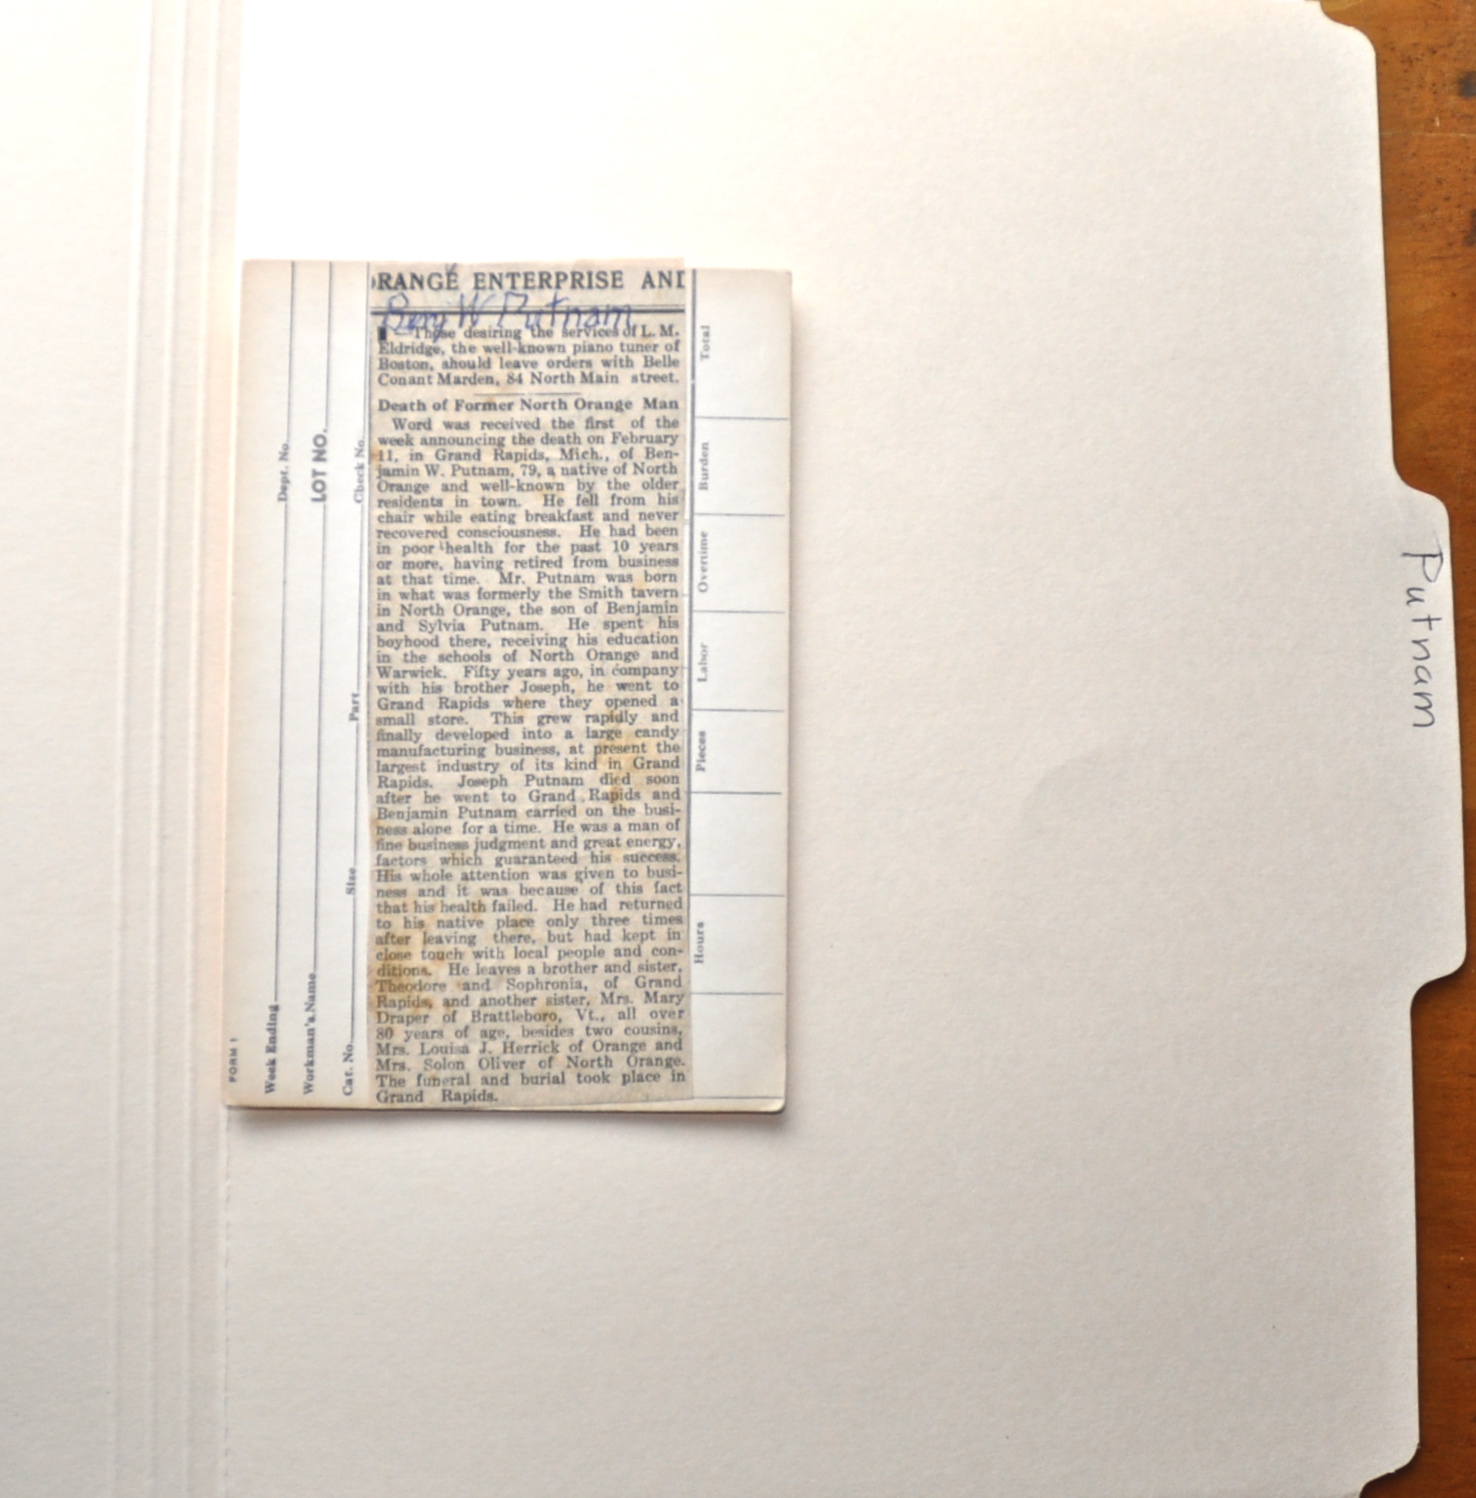 ORANGE ENTERPRISE AND
Benj W Putnam
Those desiring the services of L. M.
Eldridge, the well-known piano tuner of
Boston, should leave orders with Belle
Conant Marden, 84 North Main street.
Death of Former North Orange Man
Word was received the first of the
week announcing the death on February
11, in Grand Rapids, Mich., of Ben-
jamin W. Putnam, 79, a native of North
Orange and well-known by the older
residents in town. He fell from his
chair while eating breakfast and never
recovered consciousness. He had been
in poor health for the past 10 years
or more, having retired from business
at that time. Mr. Putnam was born
in what was formerly the Smith tavern
in North Orange, the son of Benjamin
and Sylvia Putnam. He spent his
boyhood there, receiving his education
in the schools of North Orange and
Warwick. Fifty years ago, in company
with his brother Joseph, he went to
Grand Rapids where they opened a
small store. This grew rapidly and
finally developed into a large candy
manufacturing business, at present the
largest industry of its kind in Grand
Rapids. Joseph Putnam died soon
after he went to Grand Rapids and
Benjamin Putnam carried on the busi-
ness alone for a time. He was a man of
fine business judgment and great energy,
factors which guaranteed his success.
His whole attention was given to busi-
ness and it was because of this fact
that his health failed. He had returned
to his native place only three times
after leaving there, but had kept in
close touch with local people and con-
ditions. He leaves a brother and sister,
Theodore and Sophronia, of Grand
Rapids, and another sister, Mrs. Mary
Draper of Brattleboro, Vt., all over
80 years of age, besides two cousins,
Mrs. Louisa J. Herrick of Orange and
Mrs. Solon Oliver of North Orange.
The funeral and burial took place in
Grand Rapids.
FORM 1
Week Ending Dept. No.
Workman's Name LOT NO.
Cat. No. Size Part Check No.
Hours Pieces Labor Overtime Burden Total
Putnam